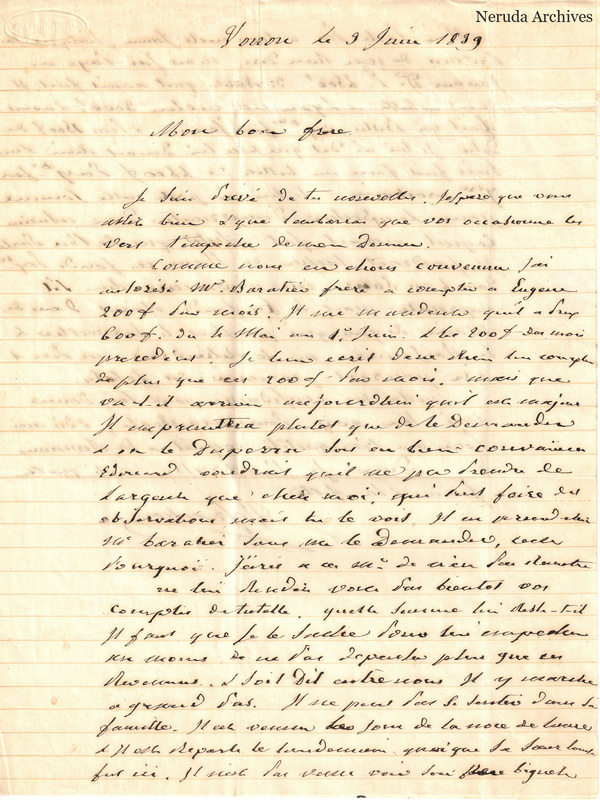 Neruda Archives
Voiron le 3 Juin 1839
Mon bon frere
Je suis privé de tes nouvelles, j'espere que vous
bien & que l'embarras que vos occasionne les
vers t'empeche de m'en donner.
Comme nous en etions convenu j'ai
autorisé Mr. Baratier frere a compter a Eugene
200f par mois. Il me mandent qu'il a pris
600f. du 4 Mai au 1er. Juin. & les 200f des mois
precedent. Je leur ecrit de ne rien leur compter
de plus que ces 200f par mois, mais que
va-t-il arriver aujourd'hui qu'il est majeur
Il empruntera plutot que de te demander
& on le Dupera Sois en bien convaincu
Edouard voudrait qu'il ne pu prendre de
L'argent que chez moi, qui peut faire des
observations mais tu le vois. Il en prend chez
Mr. baratier sans me le Demander, 
Pourquoi. J'ecris a ces Mrs. de rien
ne lui Rendez vous pas bientot vos
comptes de tutelle. quelle somme lui reste-t-il
Il faut que je le sache pour lui empecher
au moins de ne pas depenser plus que ses
Revenus. & Soit Dit entre nous Il y marche
a grand pas. Il ne peut pas se sentir dans sa
famille. Il est venu le jour de la noce de
& Il est reparti le lendemain quoique sa sœur
fut ici. Il n'est pas venu voir son